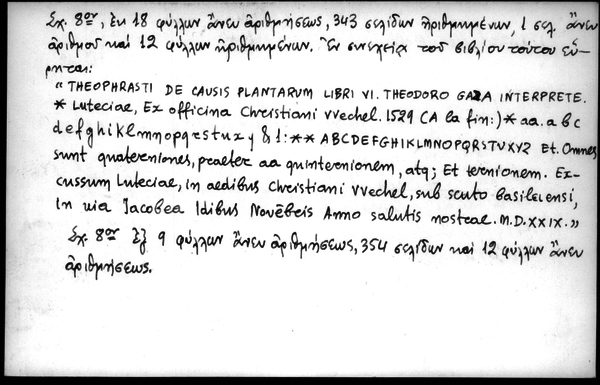 Σχ. 8ον, ἐκ 18 φύλλων ἄνευ ἀριθμήσεως, 343 σελίδων ἠριθμημένων, 1 σελ. ἄνευ
ἀριθμοῦ καὶ 12 φύλλων ἠριθμημένων. Ἐν συνεχείᾳ τοῦ βιβλίου τούτου εὕ-
ρηται:
" THEOPHRASTI DE CAUSIS PLANTARUM LIBRI VI. THEODORO GAZA INTERPRETE.
* Luteciae, Ex officina Christiani vvechel. 1529 (A la fin:) * aa. a b c
d e f g h i k l m n o p q r s t u x y & 1: ** A B C D E F G H I K L M N O P Q R S T V X Y Z Et. Omnes
sunt quaterniones, praeter aa quinternionem, atq; Et ternionem. Ex-
cussum Luteciae, in aedibus Christiani vvechel, sub scuto basileiensi,
in uia Jacobea Idibus Novēbris Anno salutis nostrae. M.D.XXIX. "
Σχ. 8ον ἐξ 9 φύλλων ἄνευ ἀριθμήσεως, 354 σελίδων καὶ 12 φύλλων ἄνευ
ἀριθμήσεως.